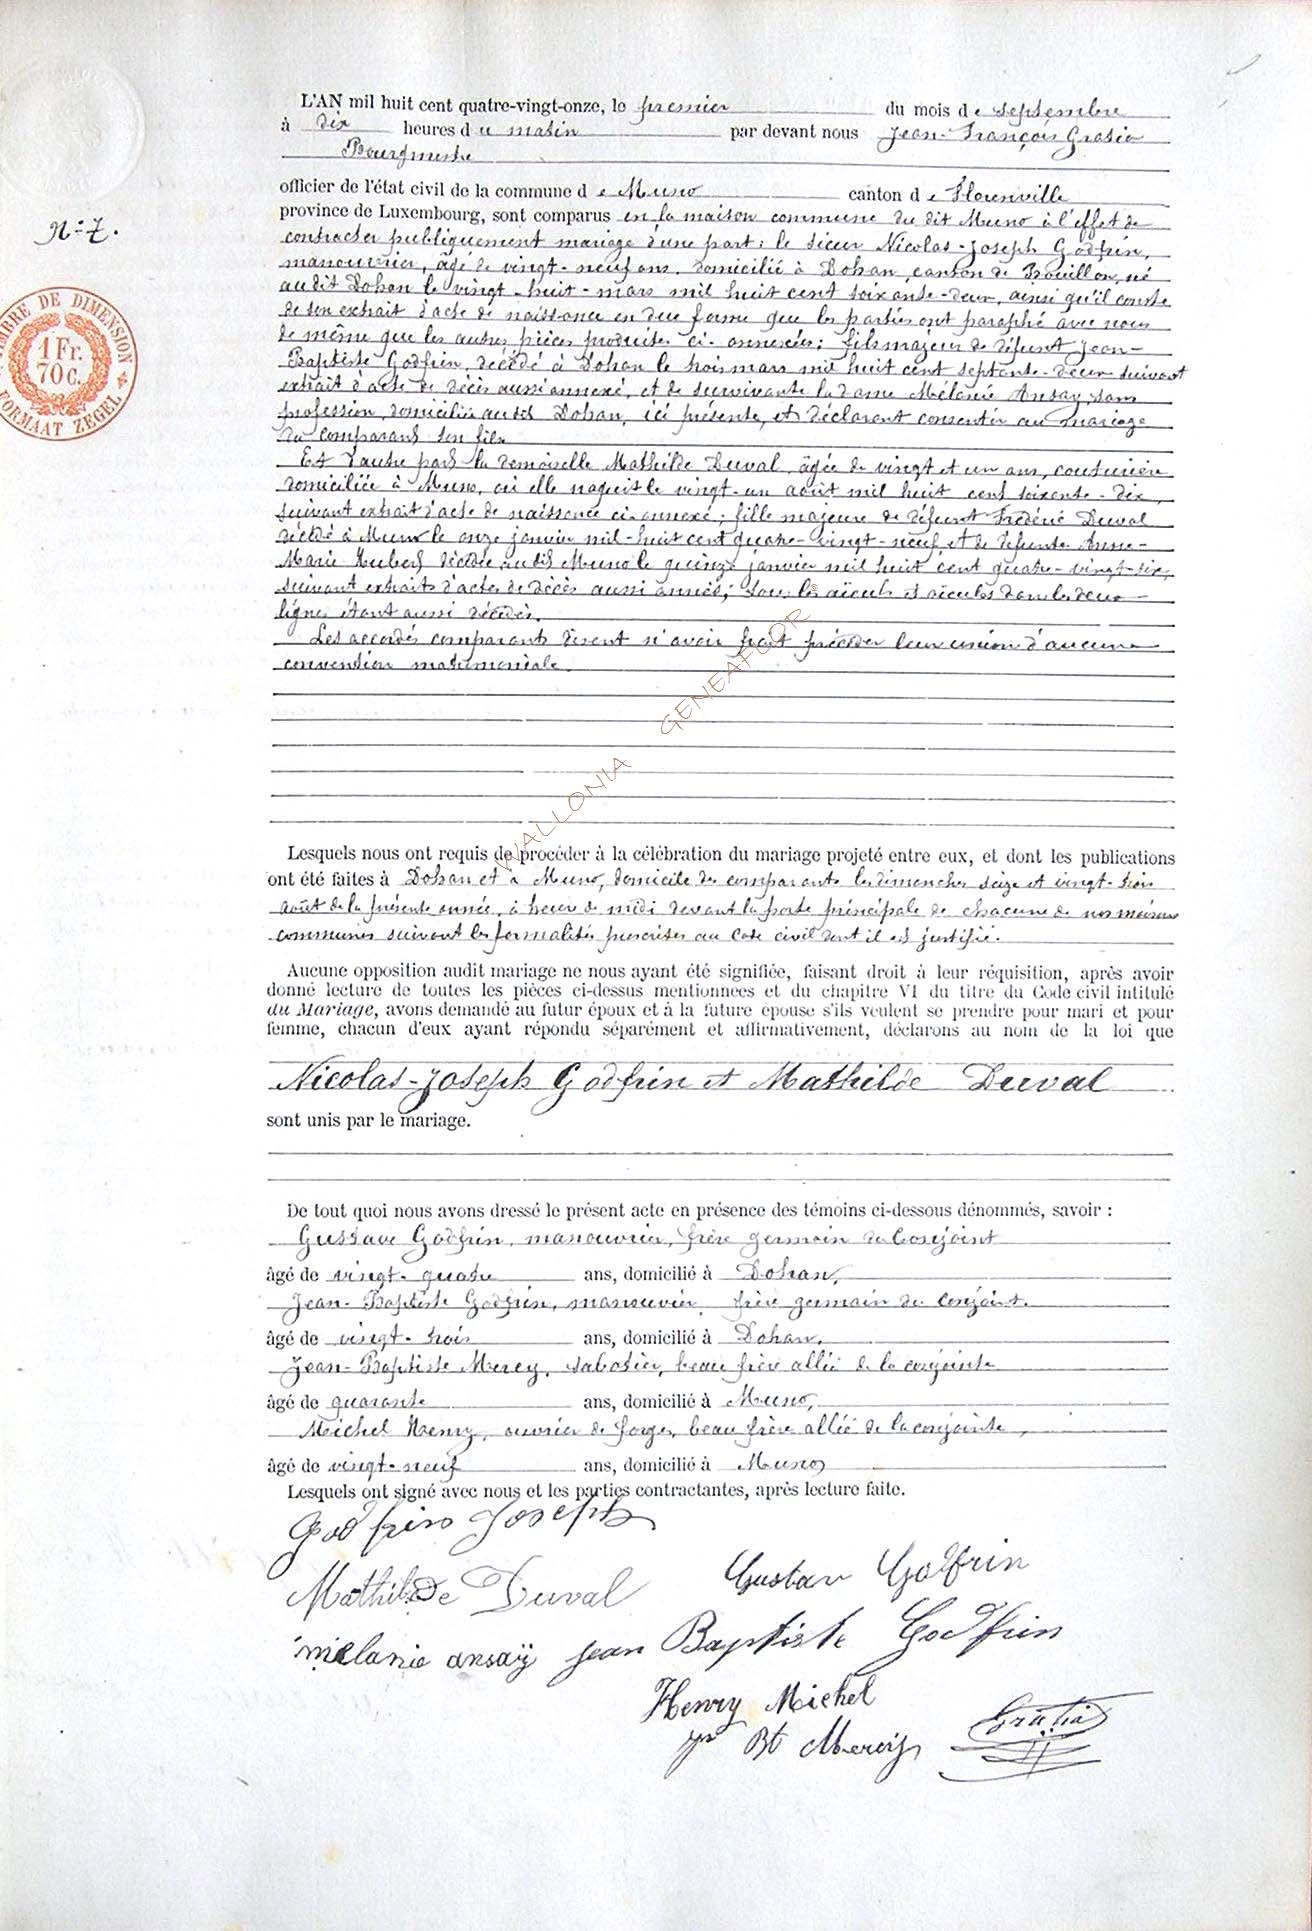 L'AN mil huit cent quatre-vingt-onze, le premier du mois de septembre
à dix heures du matin par devant nous Jean-François Gratia
Bourgmestre
officier de l'état civil de la commune de Muno canton de Florenville
N° 7.
province de Luxembourg, sont comparus en la maison commune du dit Muno à l'effet de
contracter publiquement mariage d'une part : le sieur Nicolas-Joseph Godfrin,
manouvrier, âgé de vingt-neuf ans, domicilié à Dohan, canton de Bouillon, né
au dit Dohan le vingt-huit-mars mil huit cent soixante-deux, ainsi qu'il conste
de son extrait d'acte de naissance en due forme que les parties ont paraphé avec nous
de même que les autres pièces produites ci-annexées ; fils majeur de défunt Jean-
Baptiste Godfrin, décédé à Dohan le trois mars mil huit cent septante-deux suivant
extrait d'acte de décès aussi annexé, et de survivante la dame Mélanie Ansay, sans
profession, domiciliée au dit Dohan, ici présente, et déclarant consentir au mariage
du comparant son fils
Et d'autre part la demoiselle Mathilde Duval, âgée de vingt et un ans, couturière
domiciliée à Muno, où elle naquit le vingt-un août mil huit cent soixante-dix,
suivant extrait d'acte de naissance ci-annexé ; fille majeure de défunt Frédéric Duval
décédé à Muno le onze janvier mil-huit cent quatre-vingt-neuf et de défunte Anne-
Marie Hubert décédée au dit Muno le quinze janvier mil huit cent quatre-vingt-six,
suivant extraits d'actes de décès aussi annexés ; tous les aïeuls et aïeules dans les deux
lignes étant aussi décédés.
Les accordés comparants disent n'avoir fait précéder leur union d'aucune
convention matrimoniale.
TIMBRE DE DIMENSION
1 Fr.
70 C.
FORMAAT ZEGEL
WALLONIA GENEAFCOR
Lesquels nous ont requis de procéder à la célébration du mariage projeté entre eux, et dont les publications
ont été faites à Dohan et à Muno, domicile des comparants les dimanches seize et vingt-trois
août de la présente année, à heure de midi devant la porte principale de chacune de nos maisons
communes suivant les formalités prescrites au Code civil dont il est justifié.
Aucune opposition audit mariage ne nous ayant été signifiée, faisant droit à leur réquisition, après avoir
donné lecture de toutes les pièces ci-dessus mentionnees et du chapitre VI du titre du Code civil intitulé
du Mariage, avons demandé au futur époux et à la future épouse s'ils veulent se prendre pour mari et pour
femme, chacun d'eux ayant répondu séparément et affirmativement, déclarons au nom de la loi que
Nicolas-Joseph Godfrin et Mathilde Duval
sont unis par le mariage.
De tout quoi nous avons dressé le présent acte en présence des témoins ci-dessous dénommés, savoir :
Gustave Godfrin, manouvrier, frère germain du Conjoint
âgé de vingt-quatre ans, domicilié à Dohan,
Jean-Baptiste Godfrin, manouvrier, frère germain du Conjoint.
âgé de vingt-trois ans, domicilié à Dohan.
Jean-Baptiste Mercy, sabotier, beau frère allié de la conjointe
âgé de quarante ans, domicilié à Muno,
Michel Henry, ouvrier de forges, beau frère allié de la conjointe,
âgé de vingt-neuf ans, domicilié à Muno
Lesquels ont signé avec nous et les parties contractantes, après lecture faite.
Godfrin Joseph
Mathilde Duval Gustav Godfrin
melanie ansaÿ jean Baptiste Godfrin
Henry Michel
Jn Bt Mercy Gratia